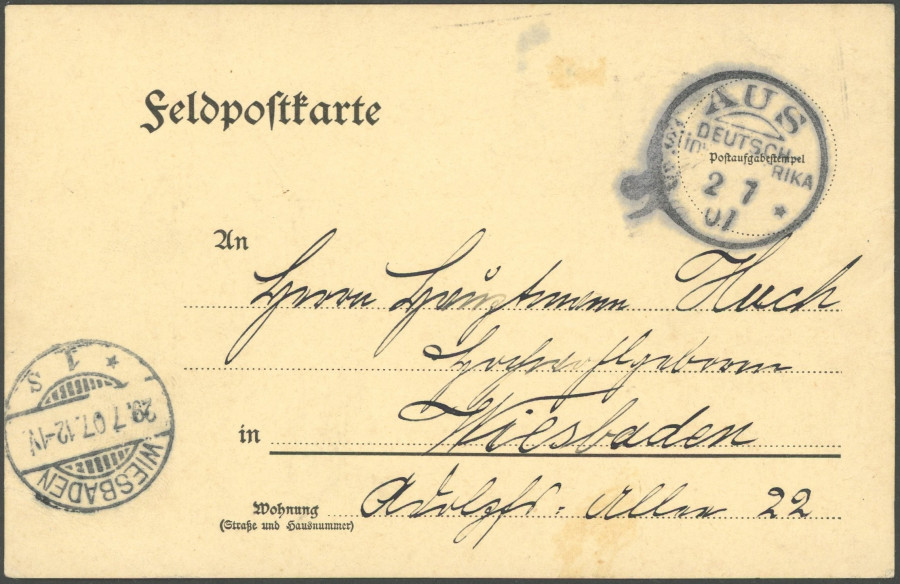 Feldpostkarte
AUS
DEUTSCH
RIKA
Postaufgabestempel
2 7
07
*
An
Herrn Hauptmann Huch
Hochwohlgeboren
in Wiesbaden
Wohnung Adolfs-Allee 22
(Straße und Hausnummer)
* 1 s
29.7.07.12-1N.
WIESBADEN